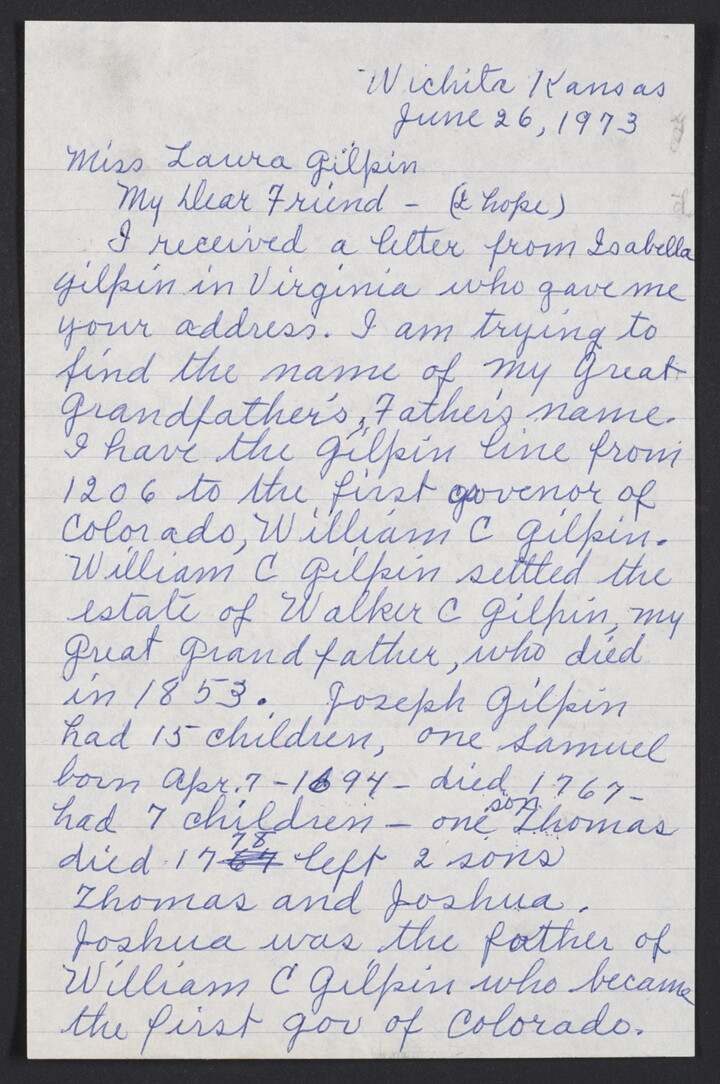 Wichita Kansas
June 26, 1973
Miss Laura Gilpin
My Dear Friend - (I hope)
I received a letter from Isabella
Gilpin in Virginia who gave me
your address. I am trying to
find the name of my Great
Grandfather's, Father's name.
I have the Gilpin line from
1206 to the first govenor of
Colorado, William C Gilpin.
William C Gilpin settled the
estate of Walker C Gilpin, my
Great Grandfather, who died
in 1853. Joseph Gilpin
had 15 children, one Samuel
born Apr. 7 - 1694 - died 1767 -
had 7 children - one son Thomas
died 1778 left 2 sons
Thomas and Joshua.
Joshua was the father of
William C Gilpin who became
the first gov of Colorado.